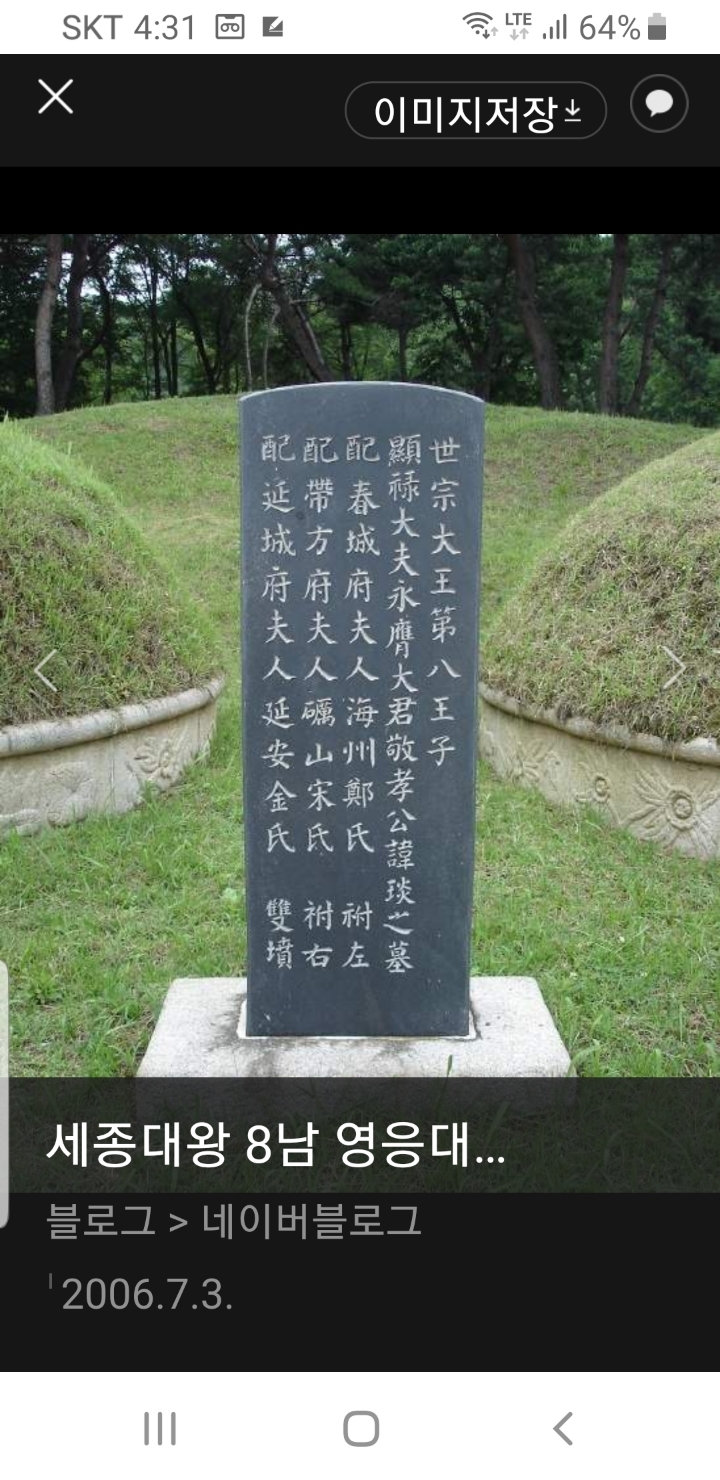 SKT 4:31
LTE
64%
이미지저장
世宗大王第八王子
顯祿大夫永膺大君敬孝公諱琰之墓
配春城府夫人海州鄭氏 祔左
配帶方府夫人礪山宋氏 祔右
配延城府夫人延安金氏 雙墳
세종대왕 8남 영응대...
블로그 > 네이버블로그
2006.7.3.